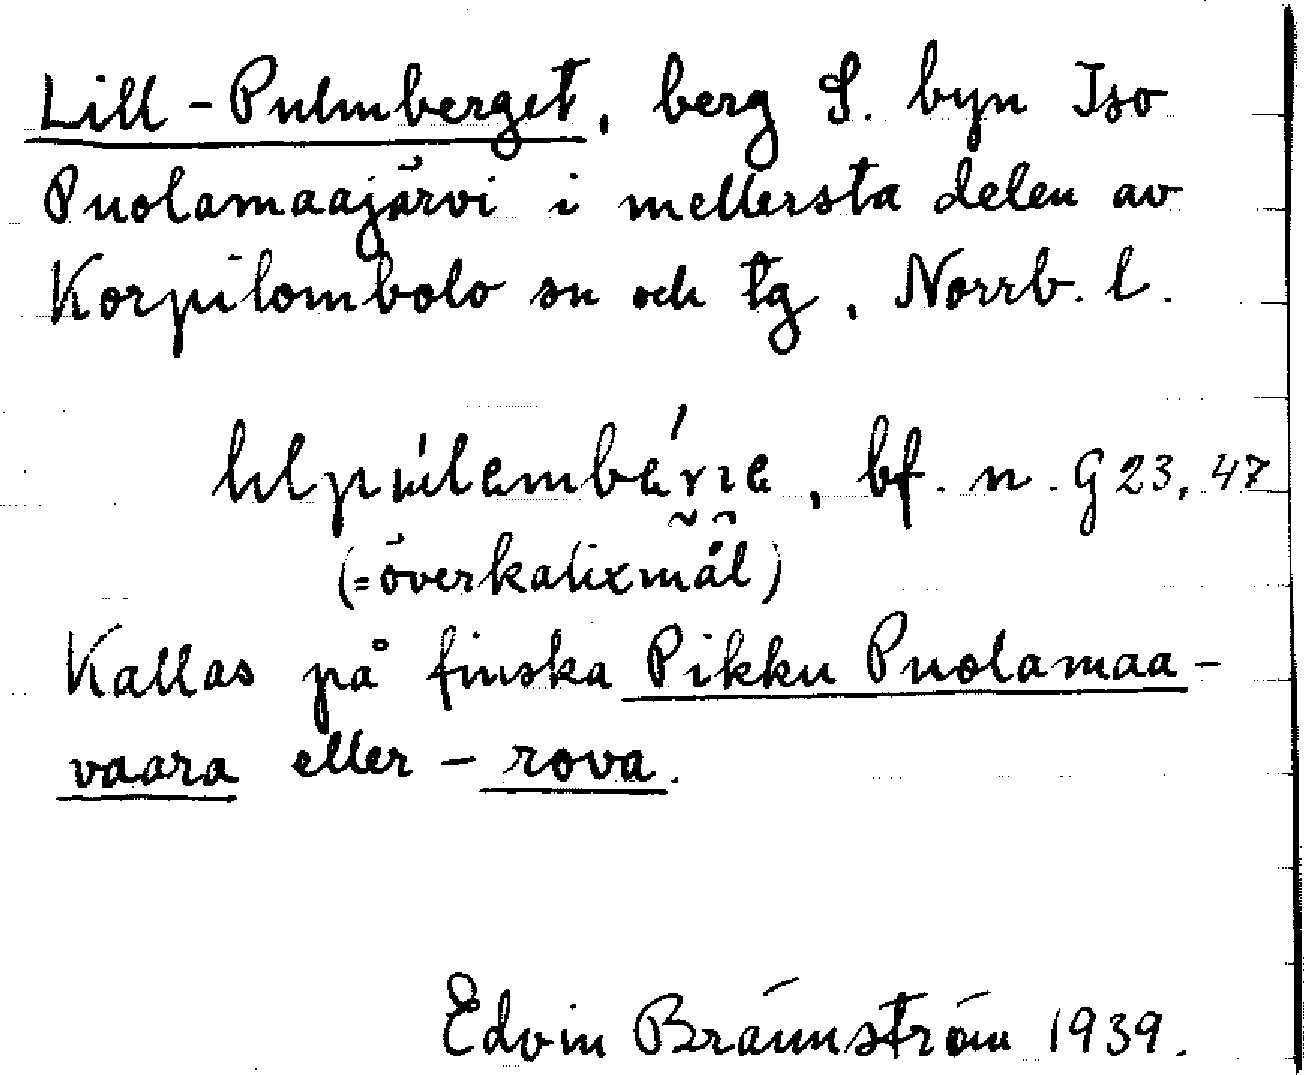 Lill-Pulmberget, berg S. byn Iso
Puolamaajärvi i mellersta delen av
Korpilombolo sn och tg, Norrb. l.
bf. n. G 23, 47
(= överkalixmål)
Kallas på finska Pikku Puolamaa-
vaara eller - rova.
Edvin Brännström 1939.